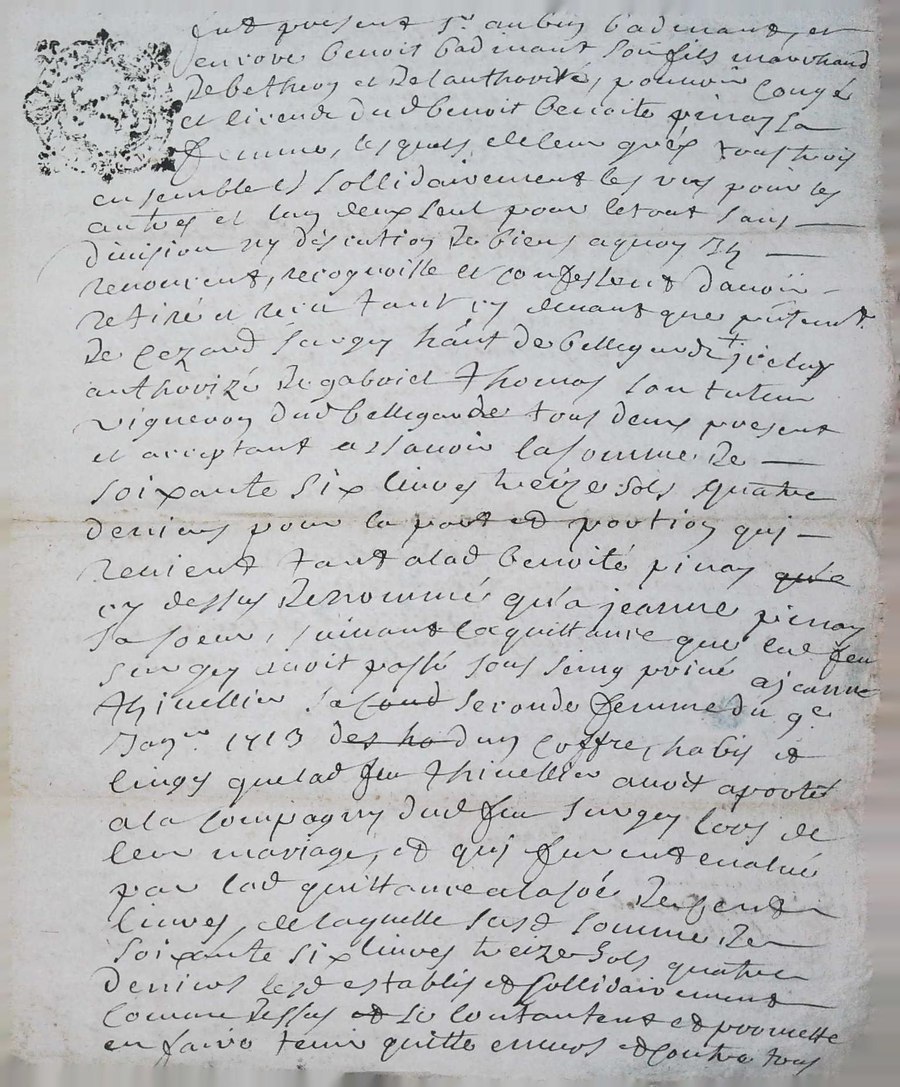 fut present Sr aubin badinant, et
encore benoit badinant son fils marchand
de betheny et de lauthorité, pouvoir congé
et licence dud benoit benoite pinay sa
femme, lesquels de leur grés tous trois
ensemble et sollidairement les uns pour les
autres et lun deux seul pour le tout sans
division ny discution de biens a quoy Ils
renoncent, recognoisse et confessent davoir
retiré et receu tant cy devant que présentemt
de Cezard Surgey hant de bellegarde Icelluy
authorizé de gabriel Thomas son tuteur
vigneron dud bellegarde tous deux present
et acceptant a scavoir la somme de
soixante six livres treize sols quatre
deniers pour la part et portion qui
revient tant a lad benoite pinay que
cy dessus denommé qu'a jeanne pinay
sa soeur, suivant la quittance que led feu
Surgey avoit passé sous seing privé a jeanne
Thivellier sa secde seconde femme du 9e
Janer 1713 des ha dun coffre, habis et
linges que lad feu Thivellier avoit aporter
a la compagny dud feu Surgey lors de
leur mariage, et qui furent evalué
par lad quittance a la so&e de cent
livres, de laquelle susd somme de
soixante six livres treize sols quatre
deniers lesd establis et sollidairement
comme dessus et se contantent et promette
en faire tenir quitte envers et contre tous